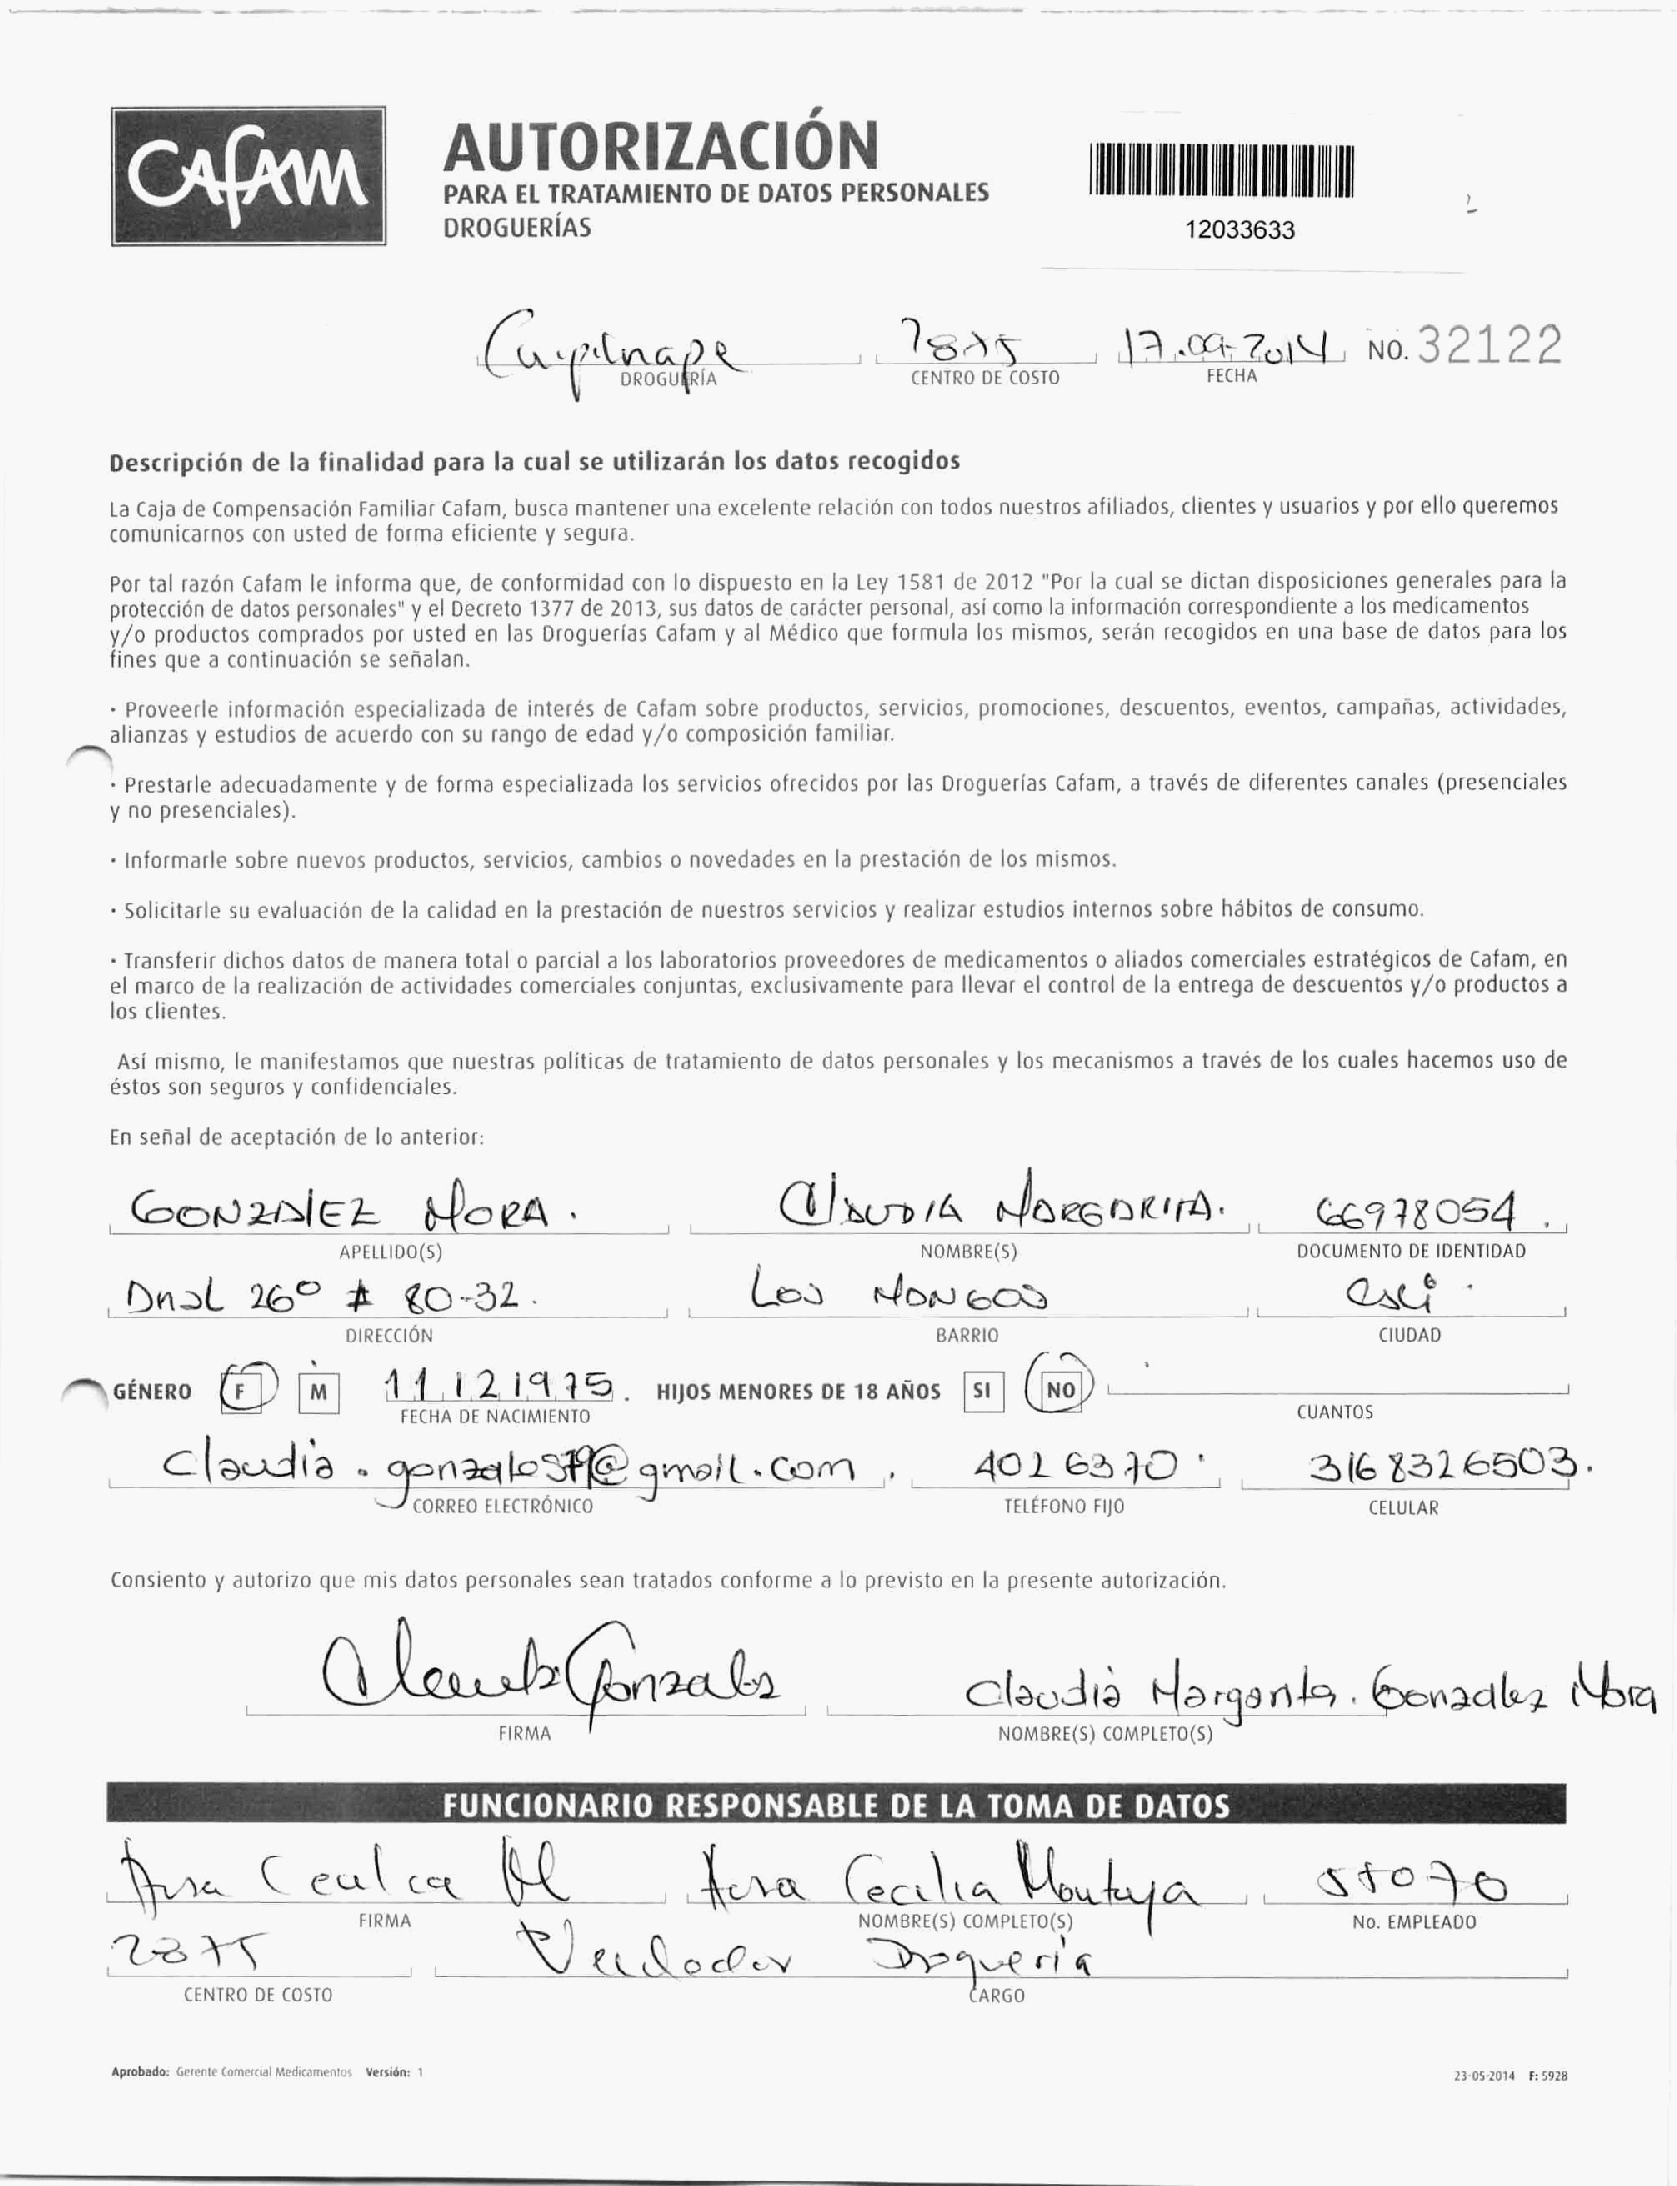 CAFAM
AUTORIZACIÓN
PARA EL TRATAMIENTO DE DATOS PERSONALES
DROGUERÍAS
12033633
17.09.2014 NO. 32122
DROGUERÍA CENTRO DE COSTO FECHA
Descripción de la finalidad para la cual se utilizarán los datos recogidos
La Caja de Compensación Familiar Cafam, busca mantener una excelente relación con todos nuestros afiliados, clientes y usuarios y por ello queremos
comunicarnos con usted de forma eficiente y segura.
Por tal razón Cafam le informa que, de conformidad con lo dispuesto en la Ley 1581 de 2012 "Por la cual se dictan disposiciones generales para la
protección de datos personales" y el Decreto 1377 de 2013, sus datos de carácter personal, así como la información correspondiente a los medicamentos
y/o productos comprados por usted en las Droguerías Cafam y al Médico que formula los mismos, serán recogidos en una base de datos para los
fines que a continuación se señalan.
· Proveerle información especializada de interés de Cafam sobre productos, servicios, promociones, descuentos, eventos, campañas, actividades,
alianzas y estudios de acuerdo con su rango de edad y/o composición familiar.
· Prestarle adecuadamente y de forma especializada los servicios ofrecidos por las Droguerías Cafam, a través de diferentes canales (presenciales
y no presenciales).
· Informarle sobre nuevos productos, servicios, cambios o novedades en la prestación de los mismos.
· Solicitarle su evaluación de la calidad en la prestación de nuestros servicios y realizar estudios internos sobre hábitos de consumo.
· Transferir dichos datos de manera total o parcial a los laboratorios proveedores de medicamentos o aliados comerciales estratégicos de Cafam, en
el marco de la realización de actividades comerciales conjuntas, exclusivamente para llevar el control de la entrega de descuentos y/o productos a
los clientes.
Así mismo, le manifestamos que nuestras políticas de tratamiento de datos personales y los mecanismos a través de los cuales hacemos uso de
éstos son seguros y confidenciales.
En señal de aceptación de lo anterior:
GONZALEZ MORA. CLAUDIA MARGARITA. 66978054.
APELLIDO(S) NOMBRE(S) DOCUMENTO DE IDENTIDAD
26 # 80-32. Los MANGOS Cali.
DIRECCIÓN BARRIO CIUDAD
GÉNERO F M 11.12 1975. HIJOS MENORES DE 18 AÑOS SI NO
FECHA DE NACIMIENTO CUANTOS
4026370 3168326503.
CORREO ELECTRÓNICO TELÉFONO FIJO CELULAR
Consiento y autorizo que mis datos personales sean tratados conforme a lo previsto en la presente autorización.
Claudia Margarita. Gonzalez Mora
FIRMA NOMBRE(S) COMPLETO(S)
FUNCIONARIO RESPONSABLE DE LA TOMA DE DATOS
Cecilia Montoya
FIRMA NOMBRE(S) COMPLETO(S) No. EMPLEADO
Vendedor Droguería
CENTRO DE COSTO CARGO
Aprobado: Gerente Comercial Medicamentos Versión: 1 23-05-2014 F: 5928